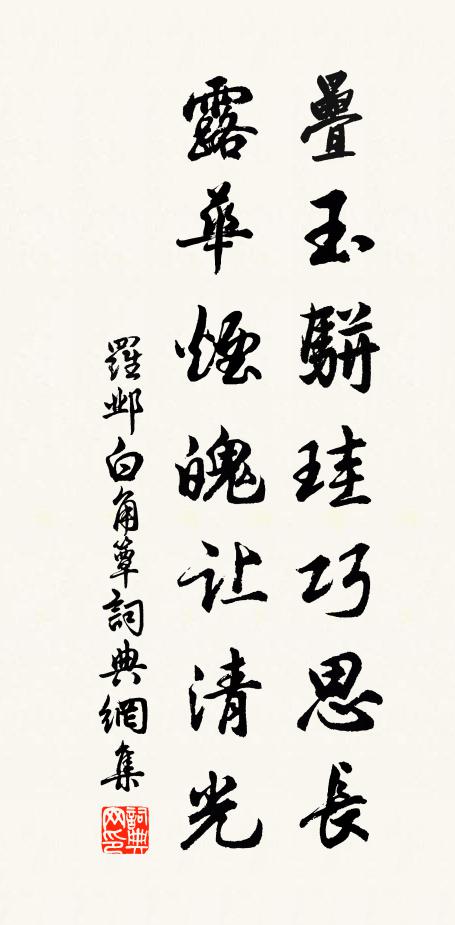 疊玉駢珪巧思長
露華煙魄让清光
羅邺白角簟詞典網集
詞典网印